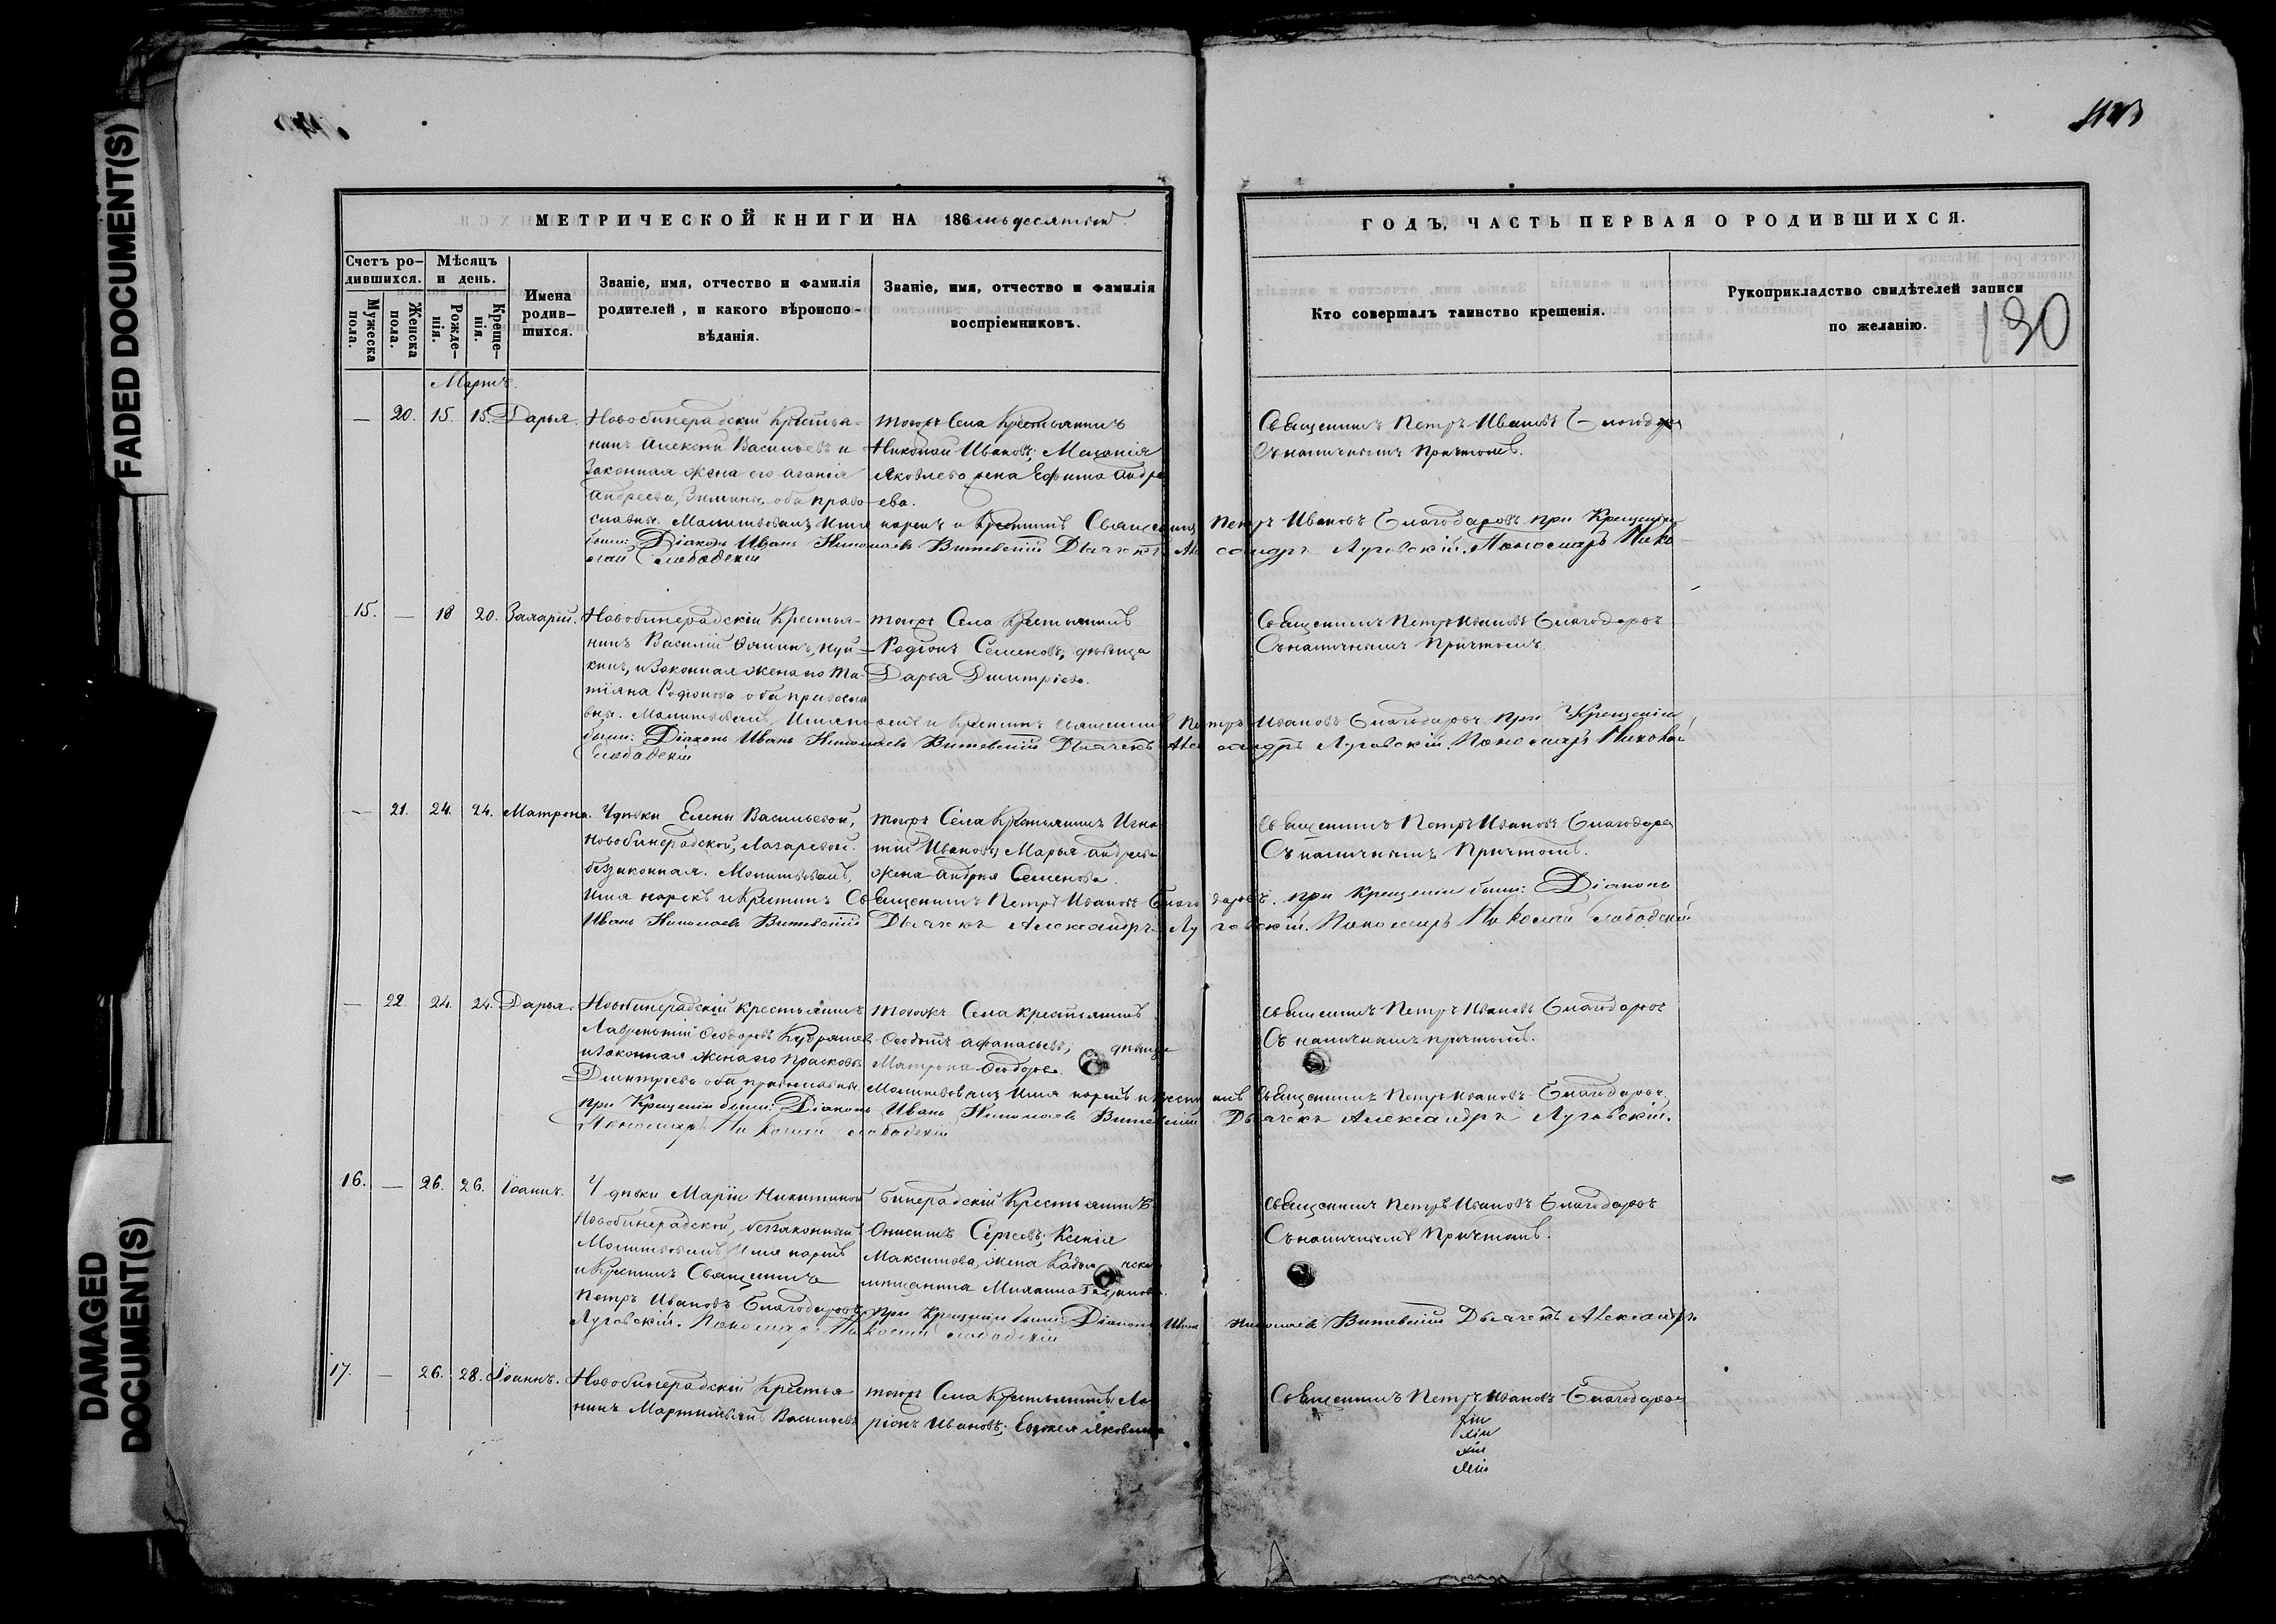 FADED DOCUMENT(S)
DAMAGED DOCUMENT(S)
МЕТРИЧЕСКОЙ КНИГИ НА 186
ГОДЪ, ЧАСТЬ ПЕРВАЯ О РОДИВШИХСЯ.
130
Счетъ родившихся.
Мужеска пола.
Женска пола.
Мѣсяцъ и день.
Рожденія.
Крещенія.
Имена родившихся.
Званіе, имя, отчество и фамилія родителей, и какого вѣроисповѣданія.
Званіе, имя, отчество и фамилія воспріемниковъ.
Кто совершалъ таинство крещенія.
Рукоприкладство свидѣтелей записи по желанію.
Мартъ.
— 20. 15. 15. Дарья. Новобинерадскій Крестья- тогожъ Села Крестьянинъ Священникъ Петръ Ивановъ
нинъ Алексѣй Васильевъ и Николай Ивановъ; Меланія Съ наличнымъ Причтомъ.
Законная жена его Агафія Яковлева жена Ефима Андре
Андреева, оба право- ева.
славны. Молитвовалъ, Имя нарекъ и Крестилъ Священникъ Петръ Ивановъ Благодаровъ при Крещеніи
были: Діаконъ Иванъ Николаевъ Витевскій Дьячекъ Александръ Луговскій. Пономарь Нико-
лай Слободскій
15. — 18 20. Захарій. Новобинерадскій Крестья- тогожъ Села Крестьянинъ Священникъ Петръ Ивановъ Благодаровъ
нинъ Василій Родіонъ Семеновъ; дѣвица Съ наличнымъ Причтомъ.
кинъ, и Законная жена его Та- Дарья Дмитріева.
тіяна Родіонова оба правосла
вны. Молитвовалъ, Имя нарекъ и Крестилъ Священникъ Петръ Ивановъ Благодаровъ при Крещеніи
были: Діаконъ Иванъ Николаевъ Витевскій Дьячекъ Александръ Луговскій. Пономарь Николай
Слободскій
— 21. 24. 24. Матрона. У дѣвки Елены Васильевой, тогожъ Села Крестьянинъ Игна Священникъ Петръ Ивановъ Благодаров
Новобинерадской, Лазаревой. тій Ивановъ; Марья Андреева Съ наличнымъ Причтомъ.
беззаконная. Молитвовалъ, жена Андрея Семенова.
Имя нарекъ и Крестилъ Священникъ Петръ Ивановъ Благодаровъ. при Крещеніи были: Діаконъ
Иванъ Николаевъ Витевскій Дьячекъ Александръ Луговскій. Пономарь Николай Слободскій
— 22. 24. 24. Дарья. Новобинерадскій крестьянинъ тогожъ Села крестьянинъ Священникъ Петръ Ивановъ Благодаровъ
Лаврентій Ѳеодоровъ Кудряшев Ѳедотъ Афанасьевъ; дѣвица Съ наличнымъ причтомъ.
и Законная жена его Прасковья Матрона Ѳеодорова.
Дмитріева оба православны. Молитвовалъ Имя нарекъ и крестилъ Священникъ Петръ Ивановъ Благодаровъ
при Крещеніи были: Діаконъ Иванъ Николаевъ Витевскій Дьячекъ Александръ Луговскій.
Пономарь Николай Слободскій
16. — 26. 26. Іоаннъ. У дѣвки Маріи Никитиной Бинерадскій Крестьянинъ Священникъ Петръ Ивановъ Благодаровъ
Новобинерадской, беззаконный Онисимъ Сергеевъ; Ксенія Съ наличнымъ Причтомъ.
Молитвовалъ, Имя нарекъ Максимова, жена
и Крестилъ Священникъ мѣщанина Михаила
Петръ Ивановъ Благодаровъ при Крещеніи были: Діаконъ Иванъ Николаевъ Витевскій Дьячекъ Александръ
Луговскій. Пономарь Николай Слободскій
17. — 26. 28. Іоаннъ. Новобинерадскій Крестья тогожъ Села Крестьянинъ Ла Священникъ Петръ Ивановъ Благодаров
нинъ Васильевъ ріонъ Ивановъ; Евдокея Яковлева